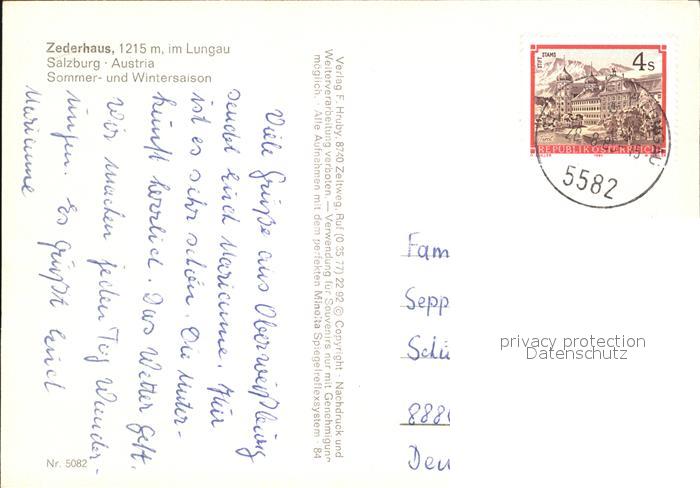 Zederhaus, 1215 m, im Lungau
Salzburg · Austria
Sommer- und Wintersaison
Viele Grüße aus Oberweißburg
sendet Euch Marianne. Hier
ist es sehr schön. Die Unter-
kunft herrlich. Das Wetter geht.
Wir machen jeden Tag Wander-
ungen. Es grüßt Euch
Marianne
Nr. 5082
Verlag F. Hruby, 8740 Zeltweg, Ruf (0 35 77) 22 92 © Copyright · Nachdruck und
Weiterverarbeitung verboten. — Verwendung für Souvenirs nur mit Genehmigung
möglich. · Alle Aufnahmen mit dem perfekten Minolta Spiegelreflexsystem · 84
STIFT STAMS
4 S
REPUBLIK ÖSTERREICH
5582
Fam
Sepp
Schü
888
Deu
privacy protection
Datenschutz